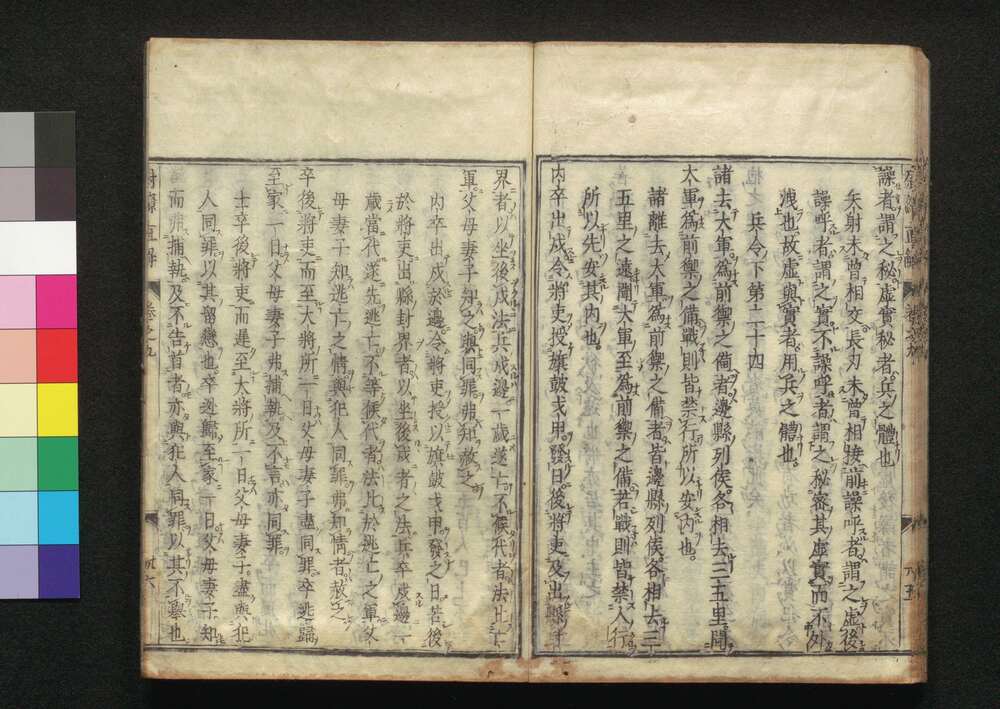 譟者謂之秘虚實秘者兵之體也
矢射未曽相交長刃未曽相接前譟呼者謂之虚後
譟呼者謂之實不譟呼者謂之秘密其虚實而不外
洩也故虚與實者用兵之體也
兵令下第二十四
諸去大軍為前禦之備者邊縣列候各相去三五里聞
大軍為前禦之備戰則皆禁行所以安内也
諸離去大軍為前禦之備者皆邊縣列候各相去三
五里之遠聞大軍至為前禦之備若戰則皆禁人行
所以先安其内也
内卒出戍令將吏授旗鼓戈甲發日後將吏及出縣封
界者以坐後戍法兵戍邊一歳遂亡不候代者法比亡
軍父母妻子知之與同罪弗知赦之
内卒出戍於邊令將吏授以旗鼓戈甲發之日若後
於將吏出縣封界者以坐後戍者之法兵卒戍邊一
歳當代遂先逃亡不等候代者法比於逃亡之軍父
母妻子知逃亡之情與犯人同罪弗知情者赦之
卒後將吏而至大將所一日父母妻子盡同罪卒逃歸
至家一日父母妻子弗捕執及不言亦同罪
士卒後將吏而遲至大將所一日父母妻子盡與犯
人同罪以其留戀也卒逃歸至家一日父母妻子知
而弗捕執及不告首者亦與犯人同罪以其不舉也